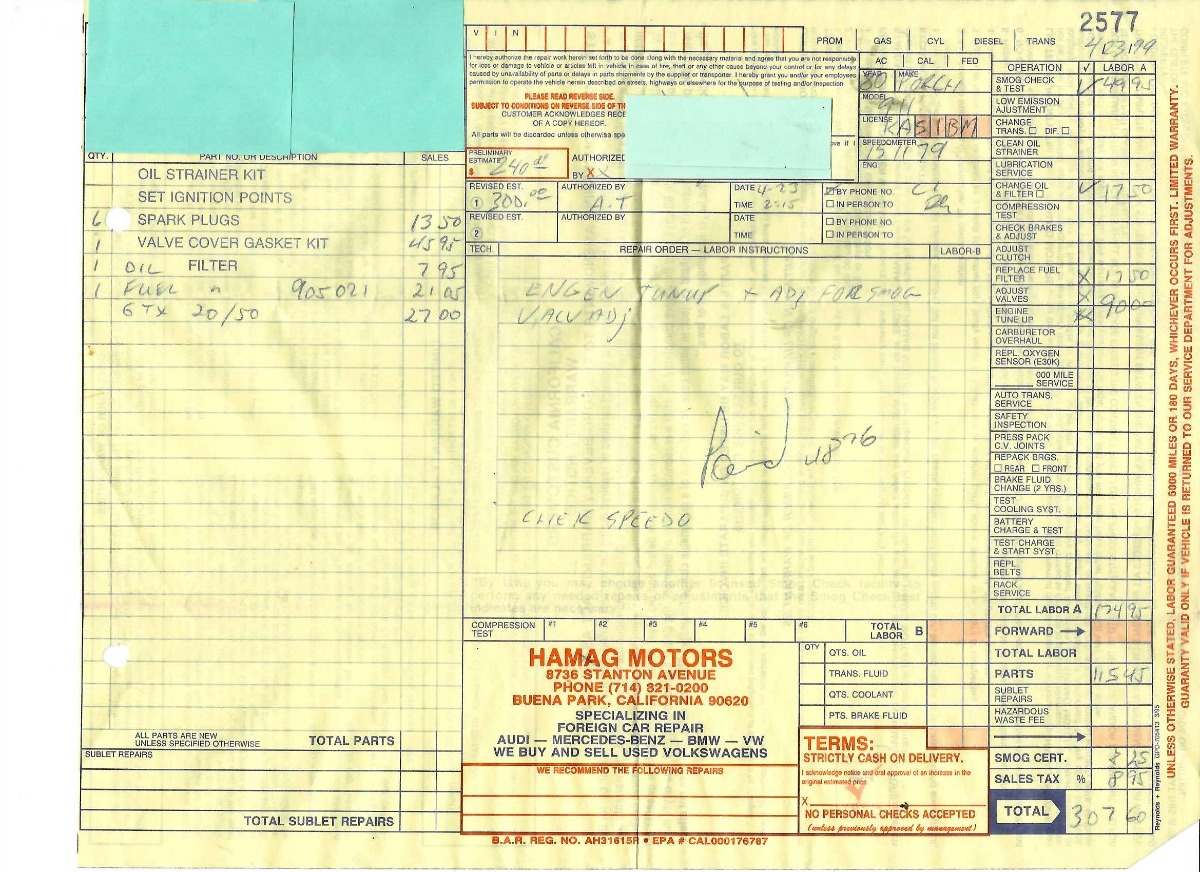 2577
V I N
PROM GAS CYL DIESEL TRANS
4/23/99
I hereby authorize the repair work herein set forth to be done along with the necessary material and agree that you are not responsible
for loss or damage to vehicle or articles left in vehicle in case of fire, theft or any other cause beyond your control or for any delays
caused by unavailability of parts or delays in parts shipments by the supplier or transporter. I hereby grant you and/or your employees
permission to operate the vehicle herein described on streets, highways or elsewhere for the purpose of testing and/or inspection.
PLEASE READ REVERSE SIDE.
SUBJECT TO CONDITIONS ON REVERSE SIDE OF TH
CUSTOMER ACKNOWLEDGES RECE
OF A COPY HEREOF.
All parts will be discarded unless otherwise spe
ove if I
AC CAL FED
YEAR 80 MAKE PORCH
MODEL 911
LICENSE KAS1BM
SPEEDOMETER 151179
ENG.
PRELIMINARY ESTIMATE $ 240.00
AUTHORIZED BY XX
REVISED EST. 1 300.00 AUTHORIZED BY A.T DATE 4-23 TIME 2:15 BY PHONE NO. IN PERSON TO
REVISED EST. 2 AUTHORIZED BY DATE TIME BY PHONE NO. IN PERSON TO
QTY. PART NO. OR DESCRIPTION SALES
OIL STRAINER KIT
SET IGNITION POINTS
6 SPARK PLUGS 13 50
1 VALVE COVER GASKET KIT 45 95
1 OIL FILTER 7 95
1 FUEL " 905021 21 05
GTX 20/50 27 00
ALL PARTS ARE NEW
UNLESS SPECIFIED OTHERWISE TOTAL PARTS
SUBLET REPAIRS
TOTAL SUBLET REPAIRS
TECH. REPAIR ORDER — LABOR INSTRUCTIONS LABOR-B
ENGEN TUNUP + ADJ FOR SMOG
VALV ADJ
Paid
CHEK SPEEDO
COMPRESSION TEST #1 #2 #3 #4 #5 #6 TOTAL LABOR B
HAMAG MOTORS
8736 STANTON AVENUE
PHONE (714) 821-0200
BUENA PARK, CALIFORNIA 90620
SPECIALIZING IN
FOREIGN CAR REPAIR
AUDI — MERCEDES-BENZ — BMW — VW
WE BUY AND SELL USED VOLKSWAGENS
WE RECOMMEND THE FOLLOWING REPAIRS
B.A.R. REG. NO. AH31615R • EPA # CAL000176787
QTY QTS. OIL
TRANS. FLUID
QTS. COOLANT
PTS. BRAKE FLUID
TERMS:
STRICTLY CASH ON DELIVERY.
I acknowledge notice and oral approval of an increase in the
original estimated price.
X
NO PERSONAL CHECKS ACCEPTED
(unless previously approved by management)
OPERATION ✓ LABOR A
SMOG CHECK & TEST ✓ 49 95
LOW EMISSION AJUSTMENT
CHANGE TRANS. DIF.
CLEAN OIL STRAINER
LUBRICATION SERVICE
CHANGE OIL & FILTER ✓ 17 50
COMPRESSION TEST
CHECK BRAKES & ADJUST
ADJUST CLUTCH
REPLACE FUEL FILTER X 17 50
ADJUST VALVES X
ENGINE TUNE UP X 90 00
CARBURETOR OVERHAUL
REPL. OXYGEN SENSOR (E30K)
000 MILE SERVICE
AUTO TRANS. SERVICE
SAFETY INSPECTION
PRESS PACK C.V. JOINTS
REPACK BRGS. REAR FRONT
BRAKE FLUID CHANGE (2 YRS.)
TEST COOLING SYST.
BATTERY CHARGE & TEST
TEST CHARGE & START SYST.
REPL BELTS
RACK SERVICE
TOTAL LABOR A 174 95
FORWARD
TOTAL LABOR
PARTS 115 45
SUBLET REPAIRS
HAZARDOUS WASTE FEE
SMOG CERT. 8 25
SALES TAX % 8 95
TOTAL 307 60
Reynolds + Reynolds 3/95
UNLESS OTHERWISE STATED, LABOR GUARANTEED 6000 MILES OR 180 DAYS, WHICHEVER OCCURS FIRST. LIMITED WARRANTY.
GUARANTY VALID ONLY IF VEHICLE IS RETURNED TO OUR SERVICE DEPARTMENT FOR ADJUSTMENTS.